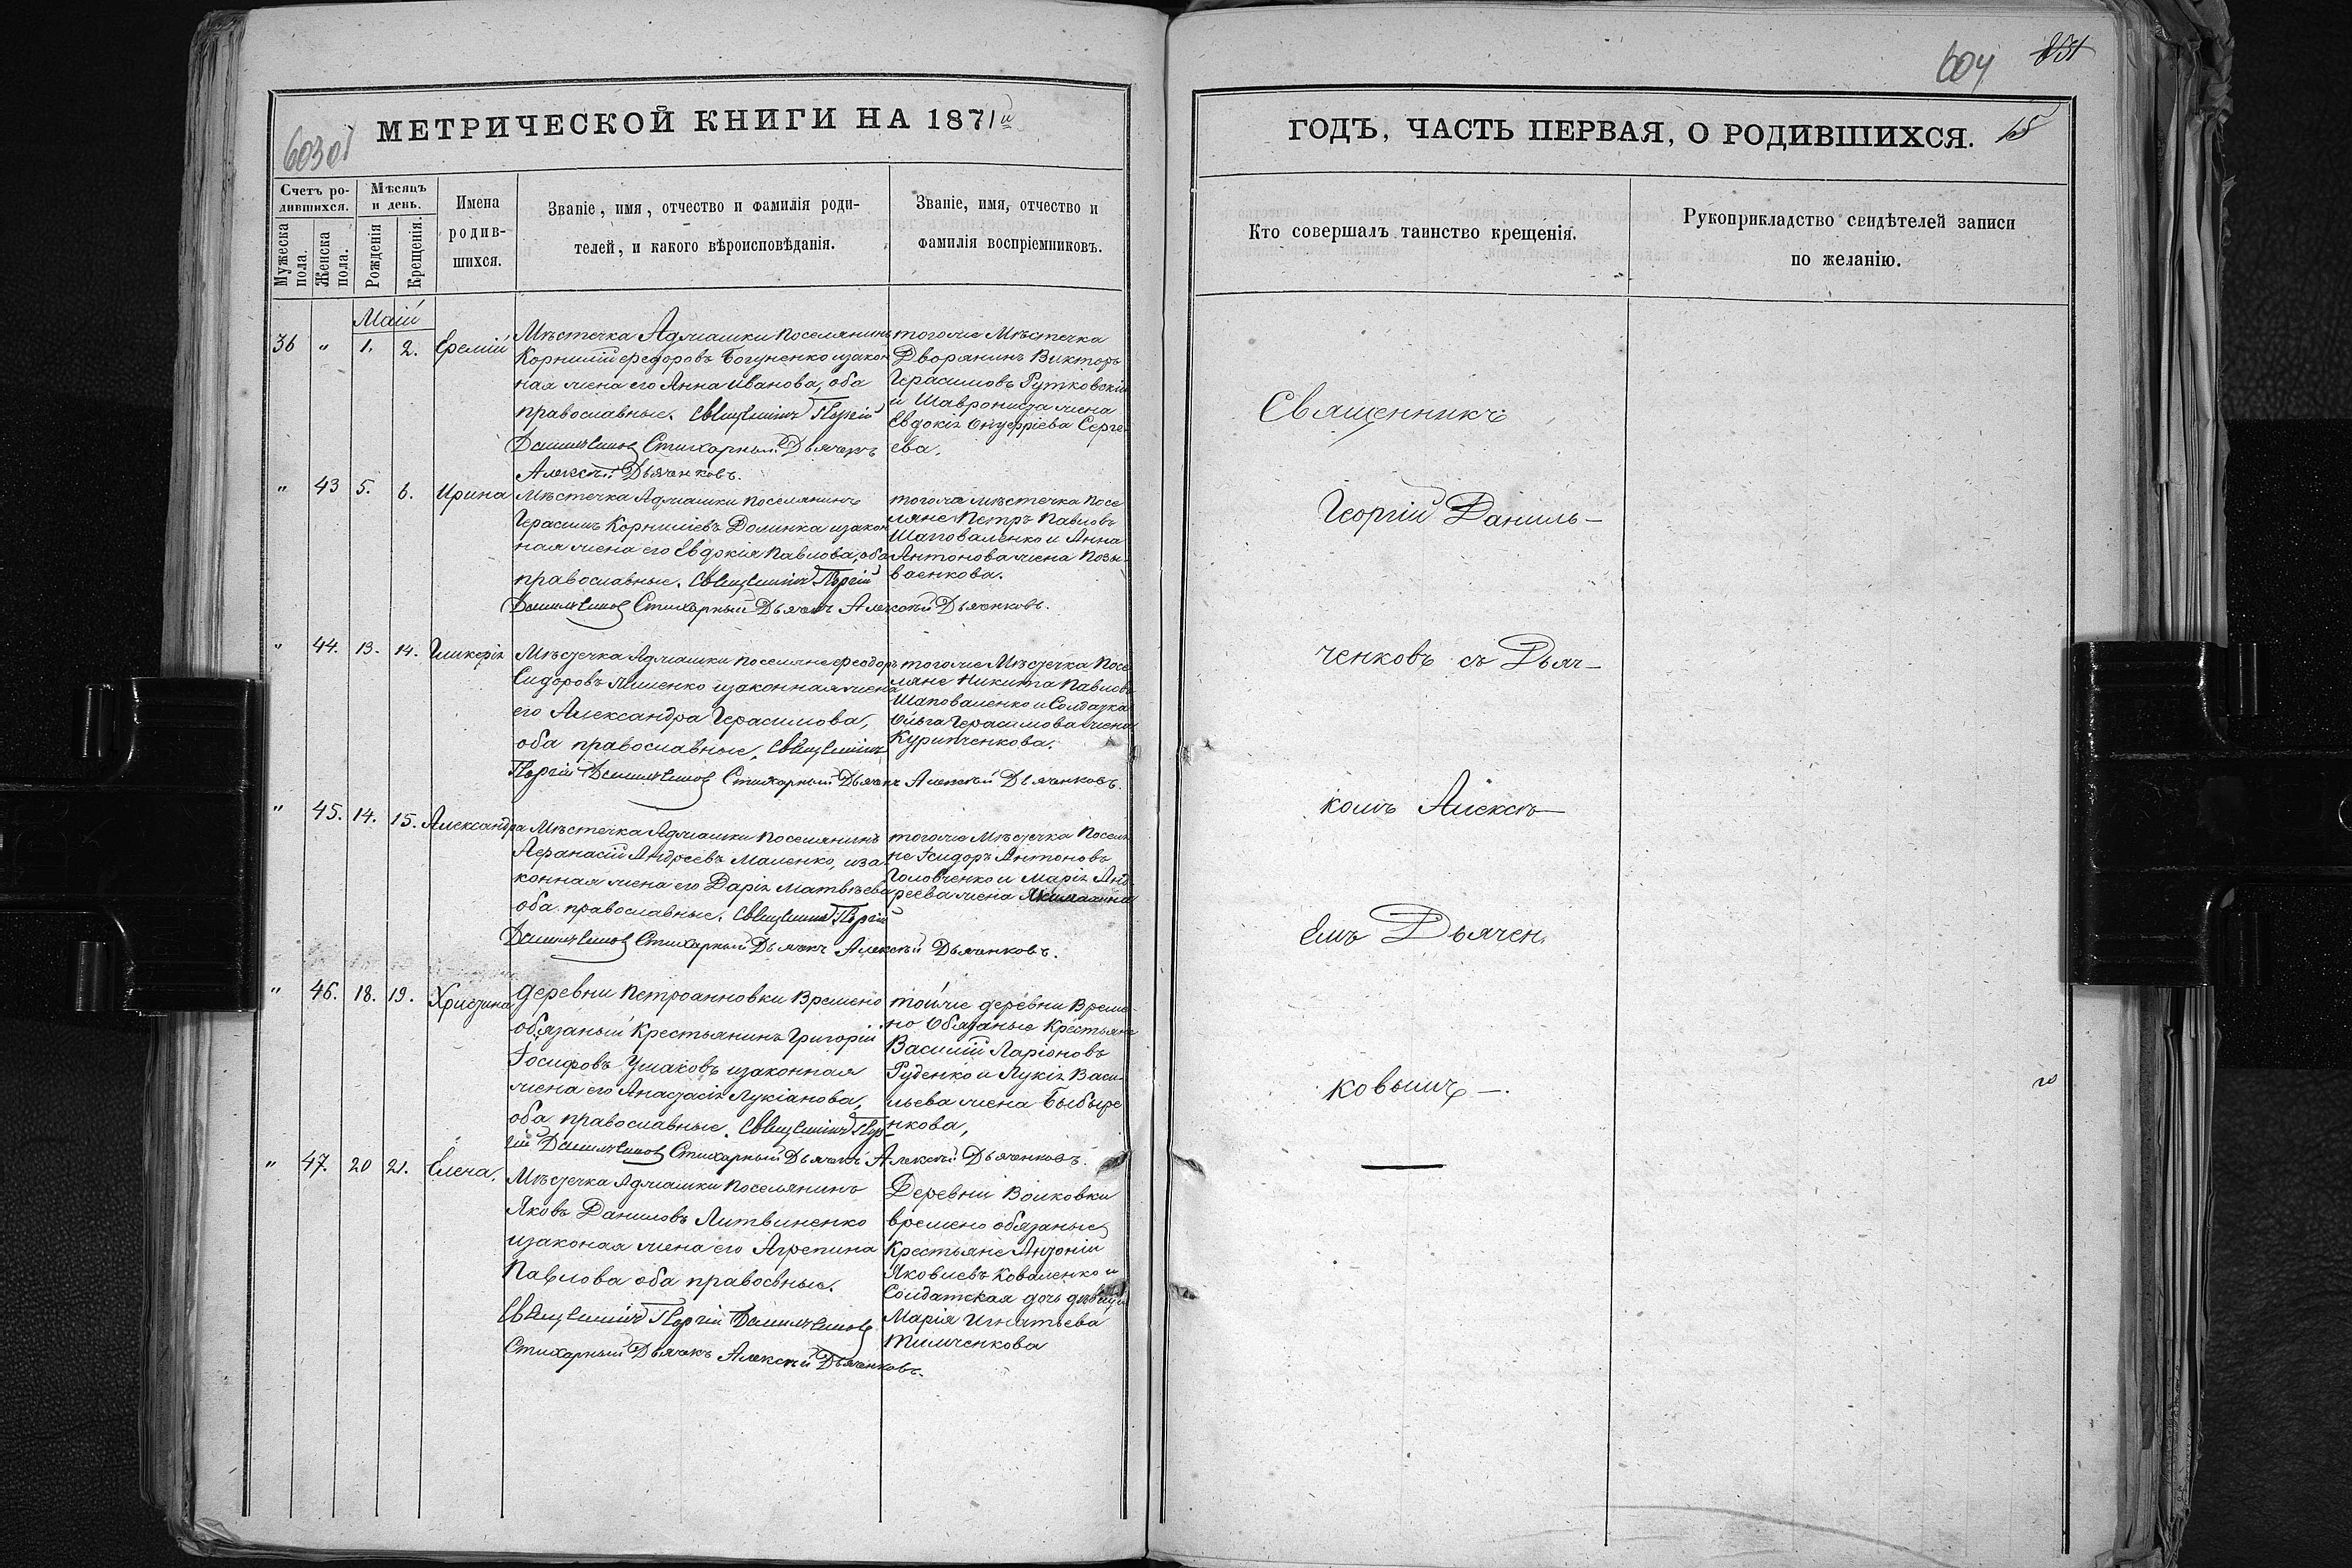 603об
МЕТРИЧЕСКОЙ КНИГИ НА 1871й
Счетъ ро-
дившихся.
Мѣсяцъ
и день.
Мужеска
пола.
Женска
пола.
Рожденія
Крещенія.
Имена
родив-
шихся.
Званіе, имя, отчество и фамилія роди-
телей, и какого вѣроисповѣданія.
Званіе, имя, отчество и
фамилія воспріемниковъ.
Маій
36 " 1. 2. Еремій
Мѣстечка Адмашки поселянинъ
Корнилій Федоровъ Богуненко изакон
ная жена его Анна Иванова, оба
православные. Священникъ Георгій
Данильченковъ Стихарный Дьячекъ
Алексѣй Дьяченковъ.
тогоже Мѣстечка
Дворянинъ Викторъ
Герасимовъ Рутковскій
и жена
Евдокія Онуфріева Серге-
ева.
" 43 5. 6. Ирина
Мѣстечка Адмашки поселянинъ
Герасимъ Корниліевъ Долинка изакон
ная жена его Евдокія Павлова, оба
православные. Священникъ Георгій
Данильченковъ Стихарный Дьячекъ Алексѣй Дьяченковъ.
тогоже мѣстечка посе
ляне Петръ Павловъ
Шаповаленко и Анна
Антонова жена Позы-
ваенкова.
" 44. 13. 14. Гликерія
Мѣстечка Адмашки поселяне Феодоръ
Сидоровъ изаконная жена
его Александра Герасимова,
оба православные, Священникъ
Георгій Данильченковъ Стихарный Дьячекъ Алексѣй Дьяченковъ.
тогоже Мѣстечка Посе
ляне Никита Павловъ
Шаповаленко и Солдатка
Ольга Герасимова жена
Курипченкова.
" 45. 14. 15. Александра
Мѣстечка Адмашки поселянинъ
Афанасій Андреевъ Маленко, иза
конная жена его Дарія Матвѣева
оба православные. Священникъ Георгій
Данильченковъ Стихарный Дьячекъ Алексѣй Дьяченковъ.
тогоже Мѣстечка Поселя
не Исидоръ Антоновъ
Головченко и Марія Анд
реева жена
" 46. 18. 19. Христина
Деревни Петроанновки Времено
обязаный Крестьянинъ Григорій
Іосифовъ Ушаковъ изаконная
жена его Анастасія Лукіанова,
оба православные. Священникъ Геор
гій Данильченковъ Стихарный Дьячекъ Алексѣй Дьяченковъ.
тойже деревни Време-
но Обязаные Крестьяне
Василій Ларіоновъ
Руденко и Лукія Васи-
льева жена Быбыре
нкова,
" 47. 20 21. Елена.
Мѣстечка Адмашки поселянинъ
Яковъ Даниловъ Литвиненко
изаконая жена его Агрепина
Павлова оба правосвные.
Священникъ Георгій Данильченковъ
Стихарный Дьячекъ Алексѣй Дьяченковъ.
Деревни Волковки
времено обязаные
Крестьяне Антоній
Яковлевъ Коваленко и
Солдатская дочь дѣвица
Марія Игнатьева
Тимченкова
604
ГОДЪ, ЧАСТЬ ПЕРВАЯ, О РОДИВШИХСЯ.
Кто совершалъ таинство крещенія.
Рукоприкладство свидѣтелей записи
по желанію.
Священникъ
Георгій Даниль-
ченковъ съ Дьяч-
комъ Алексѣ-
емъ Дьячен.
ковымъ —.